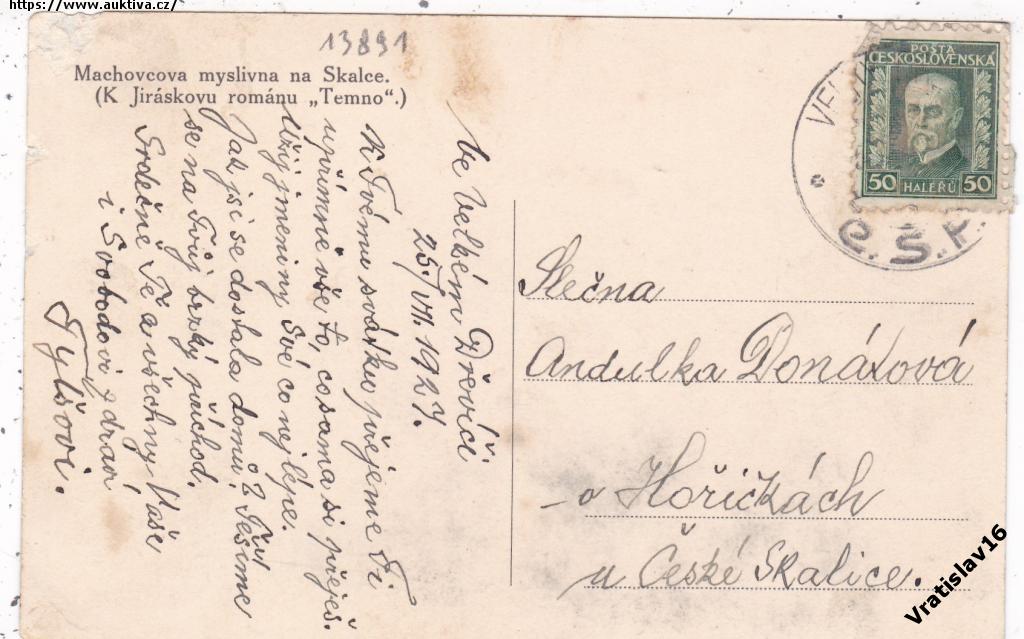 https://www.auktiva.cz/
13891
Machovcova myslivna na Skalce.
(K Jiráskovu románu „Temno“.)
Ve Velkém Dřevíči
25/VII. 1927.
K Tvému svátku přejeme Ti
upřímně vše to, co sama si přeješ.
Užij jmeniny Své co nejlépe.
Jak jsi se dostala domů? Těšíme
se na Tvůj brzký příchod.
Srdečně Tě a všechny Vaše
i Svobodovi zdraví
Tylšovi.
POSTA
CESKOSLOVENSKA
50 HALÉŘŮ 50
VEL
Č.S.P.
Slečna
Andulka Donátová
v Hořičkách
u České Skalice.
Vratislav16